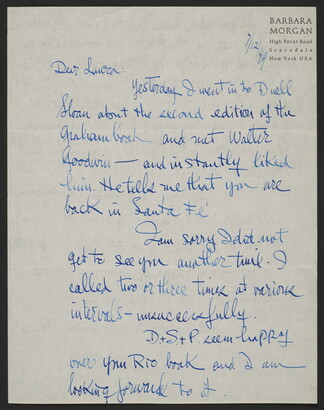 BARBARA
MORGAN
High Point Road
Scarsdale
New York USA
Dear Laura:
Yesterday I went in to Duell
Sloan about the second edition of the
Graham book and met Walter
Goodwin — and instantly liked
him. He tells me that you are
back in Santa Fé
I am sorry I did not
get to see you another time. I
called two or three times at various
intervals - unsuccessfully.
D+S+P. seem happy
over your Rio book and I am
looking forward to it.